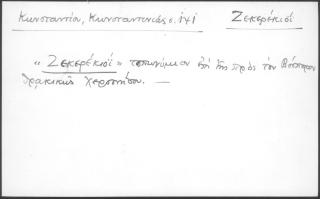 Κωνσταντίου, Κωνσταντινιάς σ. 141 Ζεκερέκιοϊ
"Ζεκερέκιοϊ" τοπωνύμιον ἐπὶ τῆς πρὸς τὸν Βόσπορον
θρακικῆς χερσονήσου. —